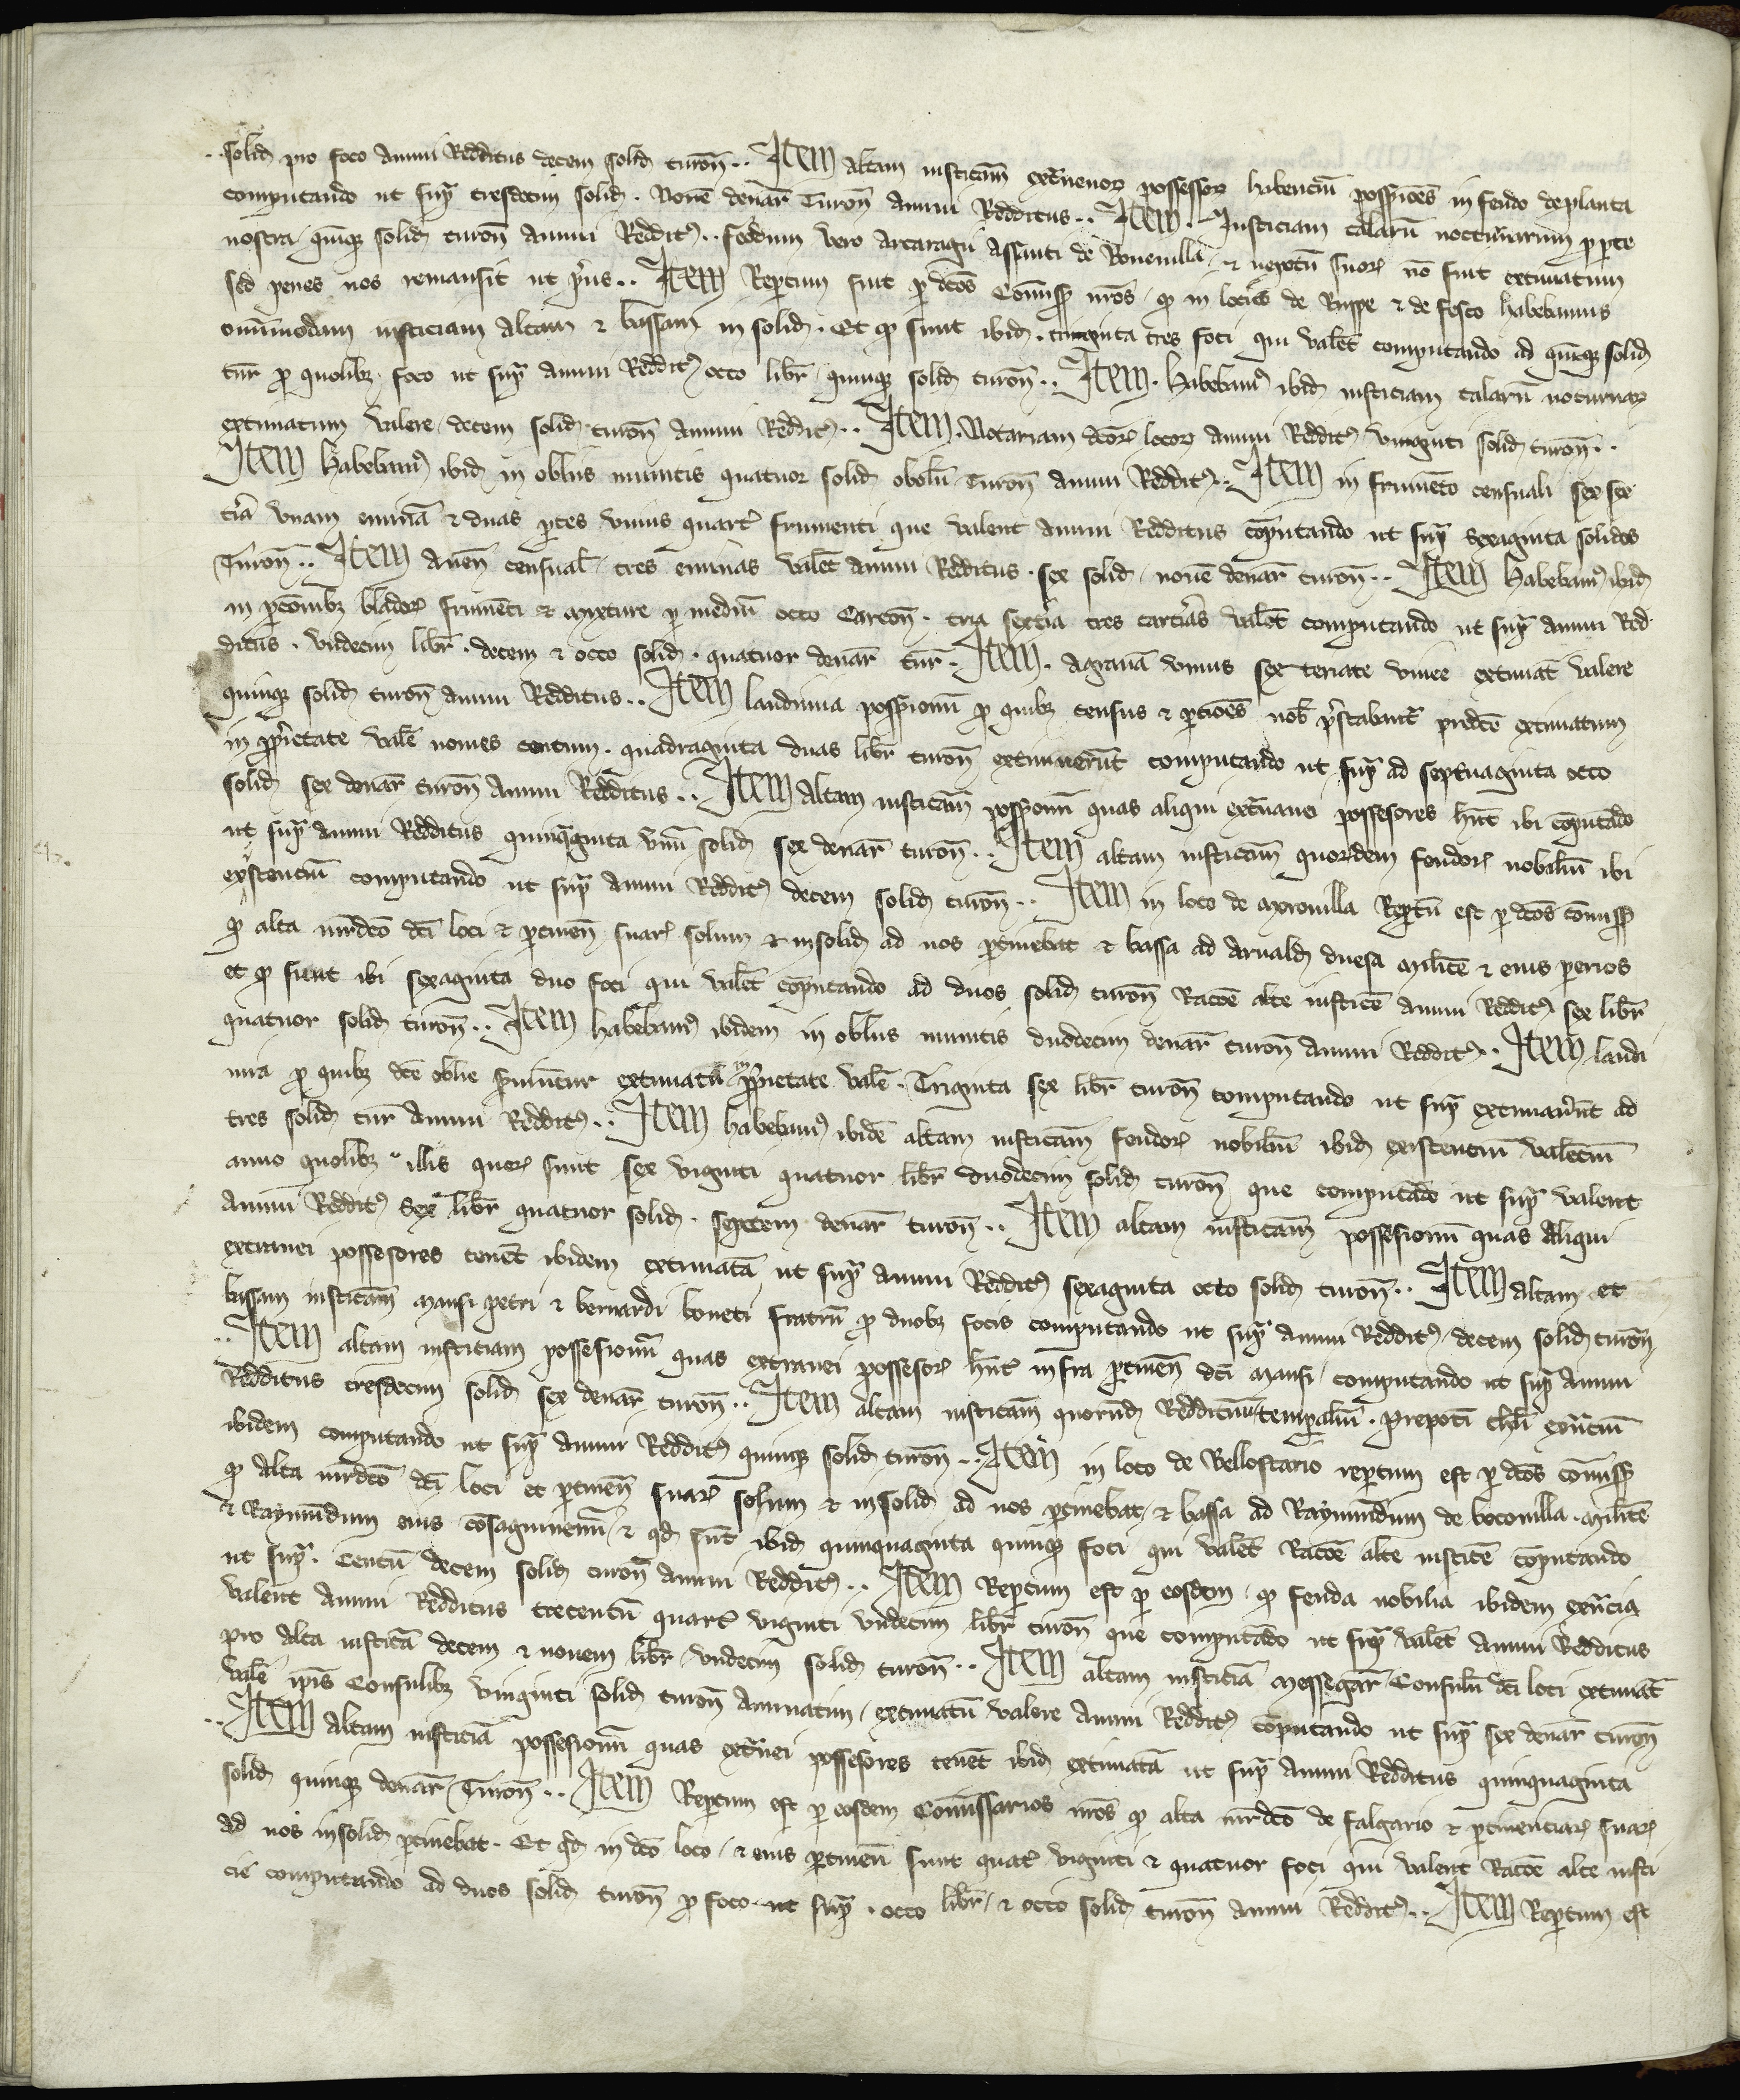 solid pro foco annui Redditus decem solid turoñ.. Item altam iusticiam extraneor possessor habenciũ possessiões in feudo deplanta
computando ut supra tresdecim solid. Novẽ denar̃ Turoñ annui Redditus.. Item. Iusticiam talarũ nocturnarum pro parte
nostra quinqz solid turoñ annui Reddit9.. feodum vero arcaragii Assauti de Roveuilla et nepotũ suor̃ nõ fuit extimatum
sed penes nos remansit ut prius.. Item Repertum fuit p dcõs Cõmiss nrõs qp in locis de Ruppe et de fosco habebamus
omnimodam iusticiam altam et bassam in solid. Et qp sunt ibid. triginta tres foci qui valẽt computando ad quinqz solid
tur̃ pro quolibz foco ut supra annui Reddit9 octo libr̃ quinqz solid turoñ.. Item. habebam9 ibid iusticiam talarũ nocturnar
extimatum valere decem solid turoñ annui Reddit9.. Item. Notariam dcõr̃ locor annui Reddit9 viginti solid turoñ..
Item habebam9 ibid in obliis minutis quatuor solid obolũ Turoñ annui Reddit9.. Item in frumẽto censuali sex sex
tia unam eminã et duas ptes unius quart̃ frumenti que valent annui Redditus cõputando ut supra sexaginta solidos
Turoñ.. Item aveñ censual̃ tres eminas valẽt annui Redditus. sex solid novẽ denar̃ turoñ.. Item habebam9 ibid
in pcõnibz bladoř frumẽti et mixture p mediũ octo Cartoñ. tria sextia tres cartias valẽt computando ut supra annui Red
ditus. undecim libr̃. decem et octo solid. quatuor denar̃ tur̃. Item. agraria unius sex teriate vinee extimat̃ valere
quinqz solid turoñ annui Redditus.. Item laudimia possessionũ pro quibz census et ptiões nob̃ prestabant̃ predcẽ extimatum
in pprietate valẽ novies centum. quadraginta duas libr̃ turoñ extimaverũt computando ut supra ad septuaginta octo
solid sex denar̃ turoñ annui Redditus.. Item altam iusticiam possessionũ quas aliqui extranei possessores hñt ibi cõputãdo
ut supra annui Redditus quinquaginta unũ solid sex denar̃ turoñ.. Item altam iusticiam quordem feudor̃ nobiliũ ibi
existenciũ computando ut supra annui Reddit9 decem solid turoñ.. Item in loco de Mironilla Reptũ est p dcõs cõmiss
qp alta iurdcõ dcĩ loci et ptineñ suar̃ solum et insolid ad nos ptinebat et bassa ad arnald duesa militẽ et eius perios
et qp sunt ibi sexaginta duo foci qui valẽt cõputando ad duos solid turoñ Racõe alte iusticie annui Reddit9 sex libr̃
quatuor solid turoñ.. Item habebam9 ibidem in obliis minutis duodecim denar̃ turoñ annui Reddit9.. Item laudi
mia pro quibz dcẽ oblie serviuntur extimatã in pprietate valẽ. Triginta sex libr̃ turoñ computando ut supra extimaverũt ad
tres solid tur̃ annui Reddit9.. Item habebam9 ibidẽ altam iusticiam feudor̃ nobiliũ ibid existenciũ valenciũ
anno quolibz illis quor̃ sunt sex viginti quatuor libr̃ duodecim solid turoñ que computãdo ut supra valent
annui Reddit9 sex libr̃ quatuor solid. septem denar̃ turoñ.. Item altam iusticiam possessionũ quas aliqui
extranei possessores tenẽt ibidem extimatã ut supra annui Reddit9 sexaginta octo solid turoñ.. Item altam et
bassam iusticiam mansi petri et bernardi boneti fratrũ pro duobz focis computando ut supra annui Reddit9 decem solid turoñ
.. Item altam iusticiam possessionũ quas extranei possessor̃ hñt infra ptineñ dcĩ mansi computando ut supra annui
Redditus tresdecim solid sex denar̃ turoñ.. Item altam iusticiam quorũd Redditũ tempaliũ. prepotĩ exñciũ
ibidem computando ut supra annui Reddit9 quinqz solid turoñ.. Item in loco de Bellostario repertum est p dcõs cõmiss
qp alta iurdcõ dcĩ loci et ptineñ suar̃ solum et insolid ad nos ptinebat et bassa ad Raymundum de boconilla militẽ
et Raymũdum eius cõsaguineum et qd sũt ibid quinquaginta quinqz foci qui valẽt Racõe alte iusticie cõputando
ut supra. Centũ decem solid turoñ annui Reddit9.. Item Reptum est p eosdem qp feuda nobilia ibidem exñcia
valent annui Redditus trecentũ quart̃ viginti undecim libr̃ turoñ que computãdo ut supra valẽt annui Redditus
pro alta iusticia decem et novem libr̃ undecim solid turoñ.. Item altam iusticiã Messegar̃ Consulũ dcĩ loci extimat̃
valẽ ipis Consulibz viginti solid turoñ annuatim extimatũ valere annui Reddit9 cõputando ut supra sex denar̃ turoñ
.. Item altam iusticiã possessionũ quas extranei possessores tenẽt ibid extimatã ut supra annui Redditus quinquaginta
solid quinqz denar̃ Turoñ.. Item Reptum est p eosdem Cõmissarios nrõs qp alta iurdcõ de falgario et ptinenciar̃ suar̃
ad nos insolid ptinebat. Et qd in dcõ loco et eius ptineñ sunt quat̃ viginti et quatuor foci qui valent Racõe alte iusti
cie computando ad duos solid turoñ pro foco ut supra. octo libr̃ et octo solid turoñ annui Reddit9.. Item Repertum est